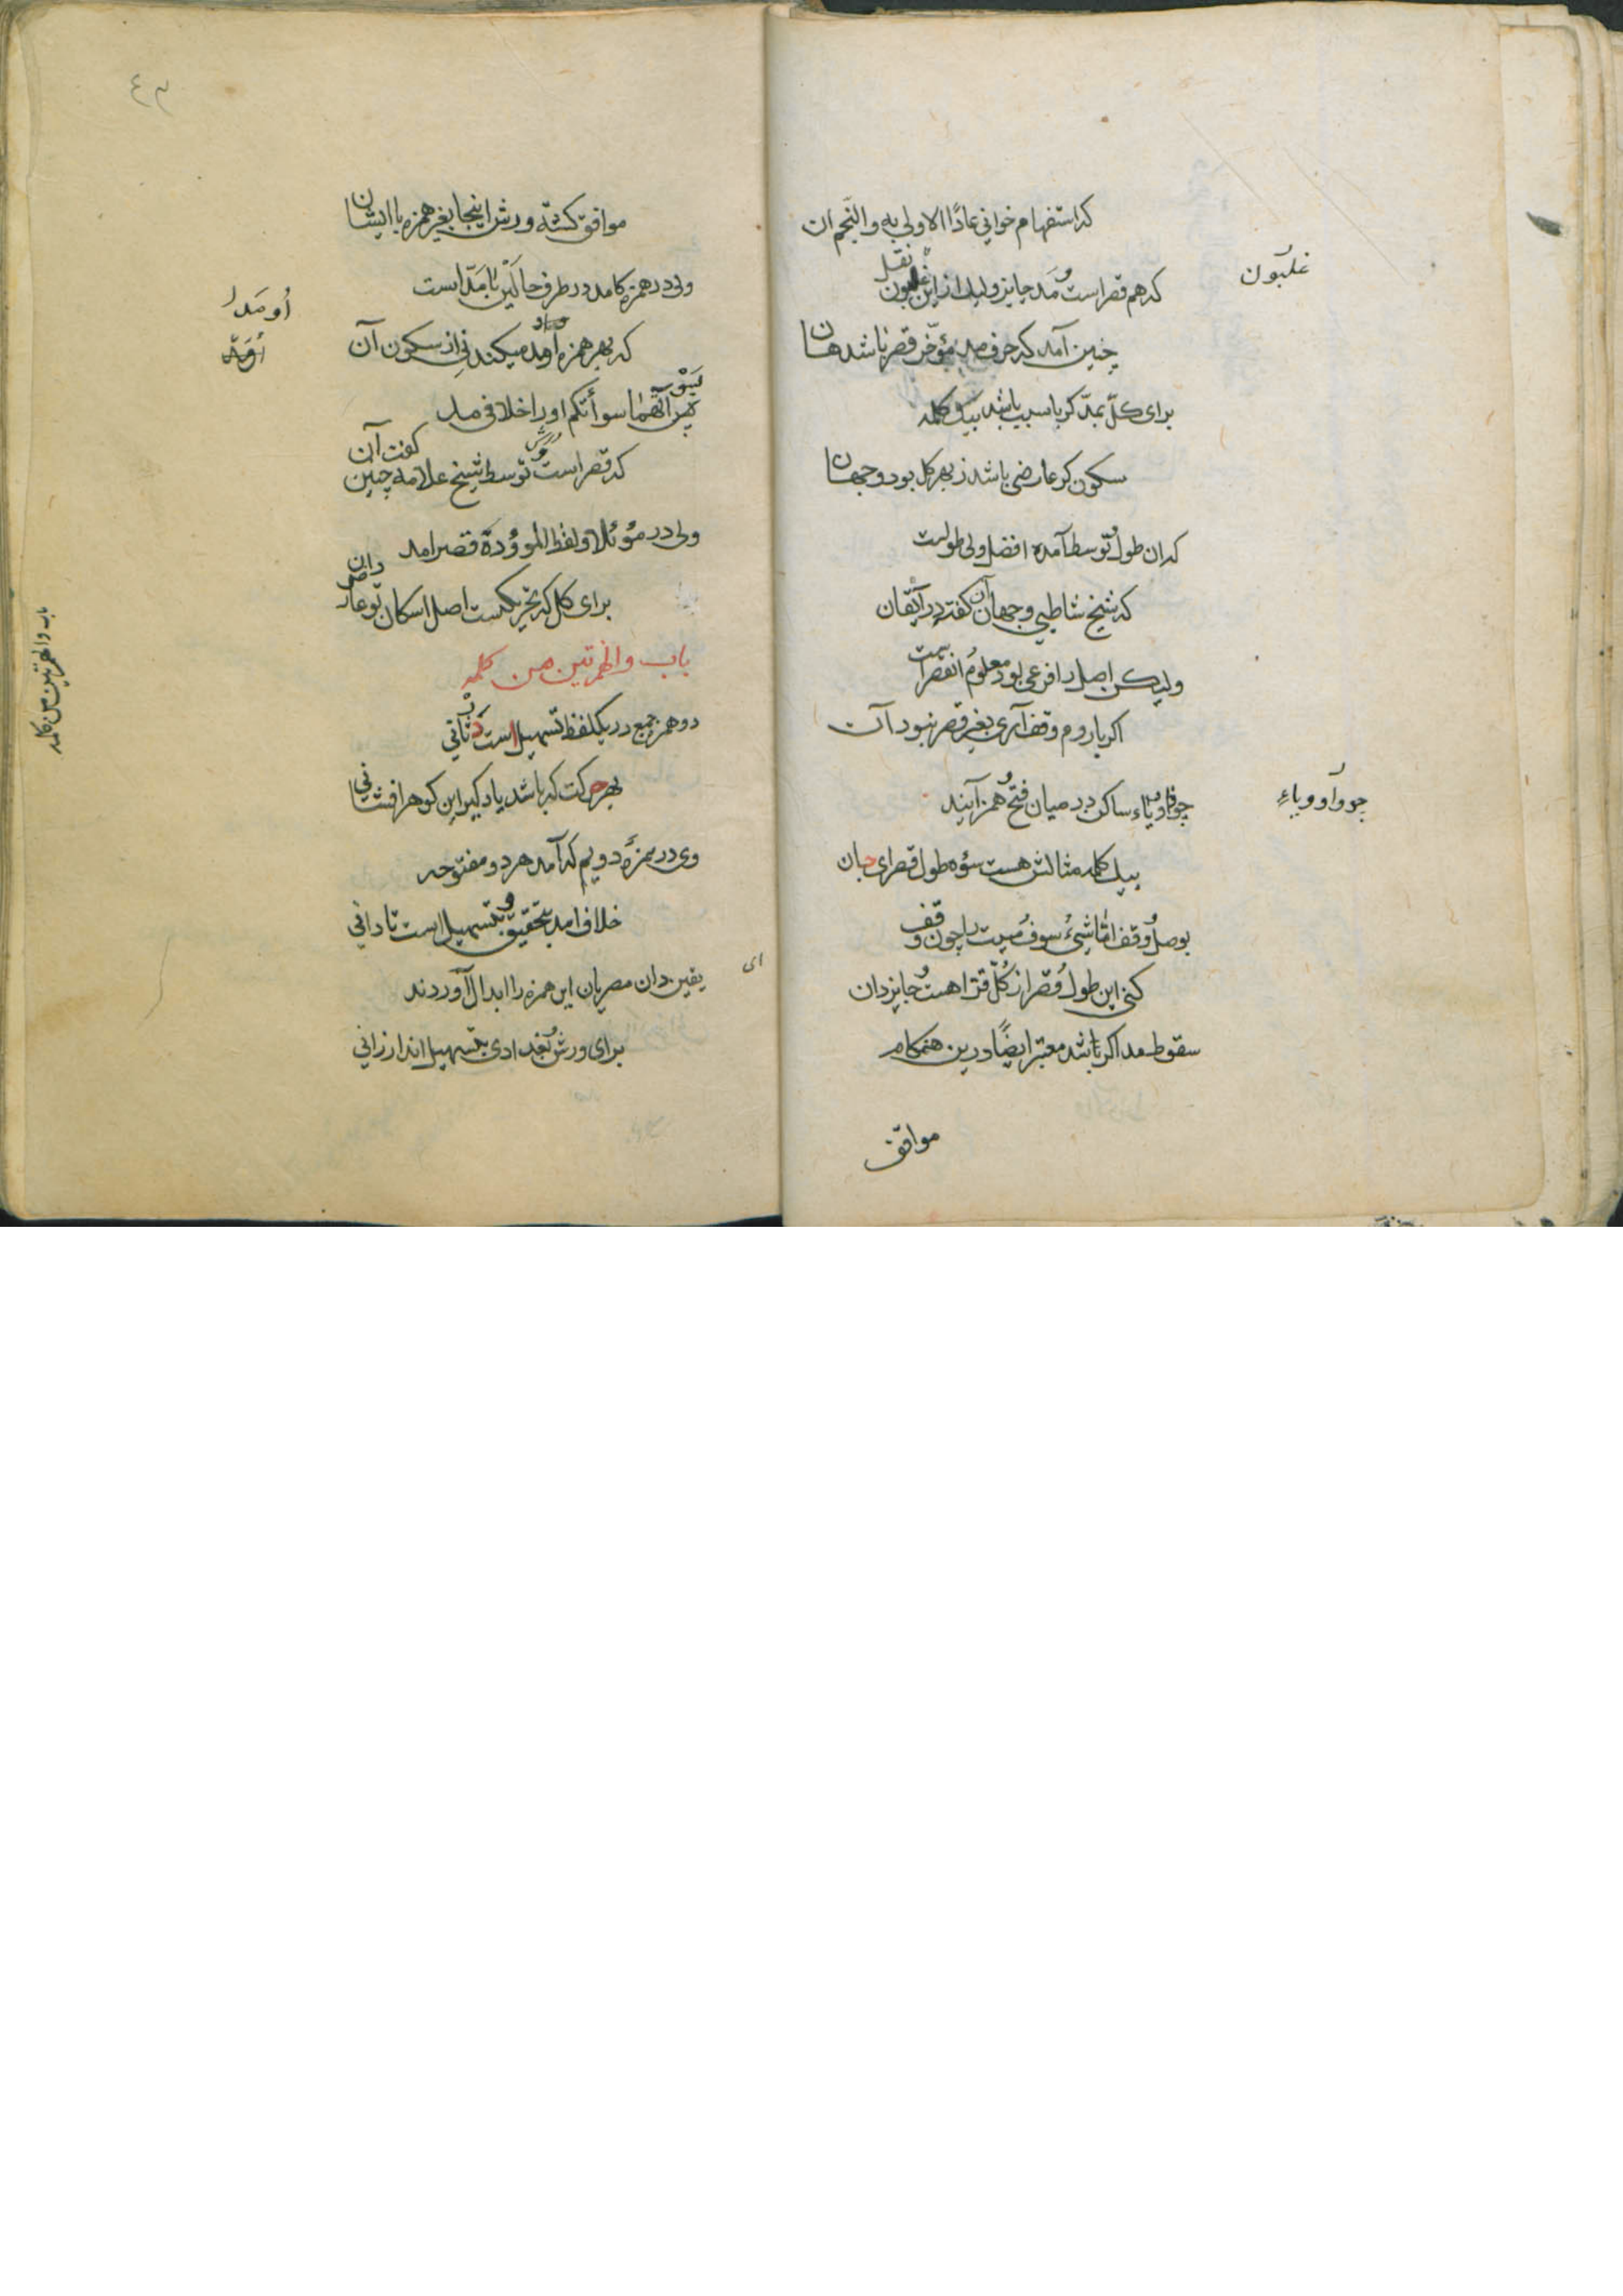 که استفهام خوانی عادًا الاولی به والنجم ان
که هم قصر است و مد جایز ولیک از ابن غلبون نقل
غلبون
چنین آمد که حرف مد مؤخر قصر باشد هان
برای کل بمد کر با سبب باشد بیک کلمه
سکون کر عارضی باشد ز بهر کل بود وجهان
که ان طول و توسط آمده افضل ولی طولت
که شیخ شاطبی وجهان آن گفته در اتقان
ولیکن اصل را فرعی بود معلوم
اکر با روم وقف آری بغیر قصر نبود آن
چو واو و یاء ساکن در میان فتح و همز آیند
چو واو و یاء
بیک کلمه مثالش هست سوه طول قصر ای جان
بوصل و وقف اما شیء سوف میت را چون وقف
کنی این طول و قصر از کل قرا هست و جایز دان
سقوط مد اکر باشد معتبر ایضًا درین هنکام
موافق
٤٣
موافق کشته ورش اینجا بغیر همزه با ایشان
ولی در همزه کامد در طرف حا لین با مد است
او مد را
که بهر همزه او مد میکند نی از سکون آن
سوأتکم او را خلافی
که قصر است و توسط شیخ علامه چنین کفت آن
ولی در موئلا و لفظ الموؤدة قصر امد
برای کل که تحریکست اصل اسکان تو عارض دان
باب والهمزتین من کلمه
باب والهمزتین من کلمه
دو همز جمع در یکلفظ تسهیل است ثانی
بهر حرکت که باشد یاد کیر این کوهر افشانی
وی در همزه دویم که آمد هر دو مفتوحه
خلاف امد بتحقیق و بتسهیل است تا دانی
یقین دان مصریان این همزه را ابدال آوردند
ای
برای ورش و بغدادی بتسهیل اند ارزانی